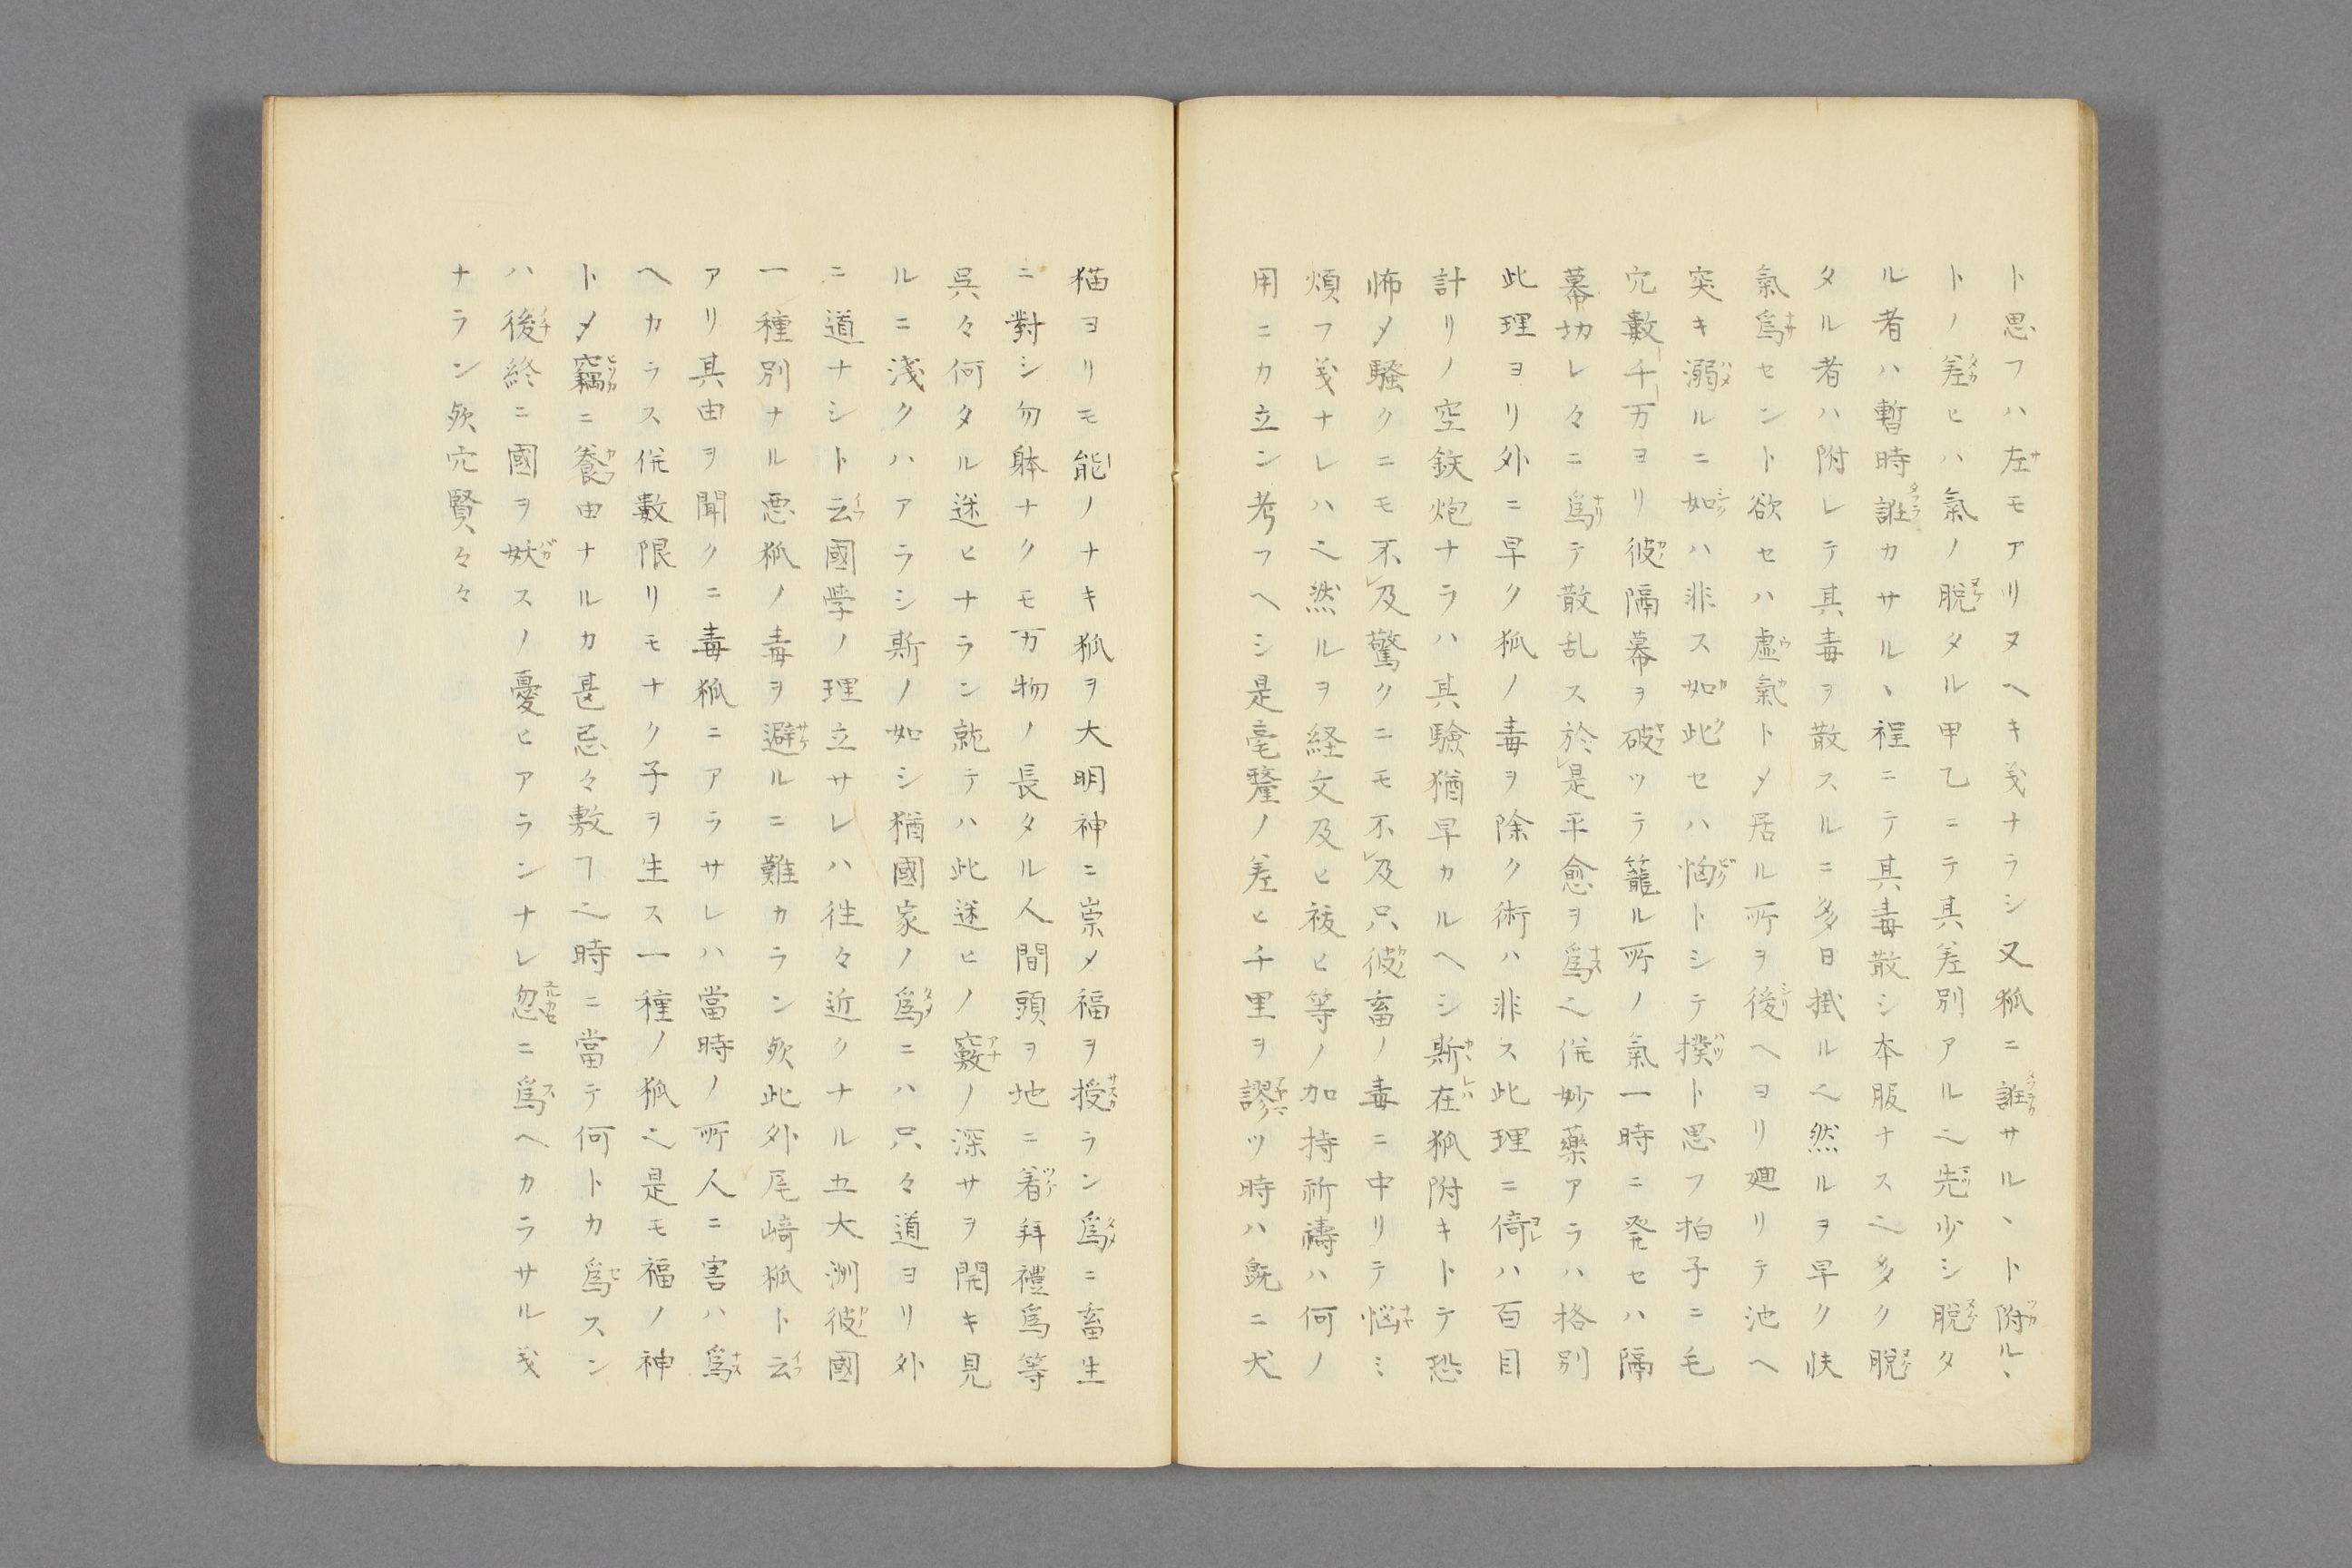 ト思フハ左モアリヌヘキ義ナラシ又狐ニ誑サルヽト附ルヽ
トノ差ヒハ氣ノ脱タル甲乙ニテ其差別アル之先少シ脱タ
ル者ハ暫時誑カサルヽ程ニテ其毒散シ本服ナス之多ク脱
タル者ハ附レテ其毒ヲ散スルニ多日掛ル之然ルヲ早ク快
氣為セント欲セハ虚氣トメ居ル所ヲ後ヘヨリ廻リテ池ヘ
突キ溺ルニ如ハ非ス如此セハ恟トシテ撲ト思フ拍子ニ毛
穴數千万ヨリ彼隔幕ヲ破ツテ籠ル所ノ氣一時ニ発セハ隔
幕切レ々ニ為テ散乱ス於是平愈ヲ為之併妙藥アラハ格別
此理ヨリ外ニ早ク狐ノ毒ヲ除ク術ハ非ス此理ニ倚ハ百目
計リノ空鉄炮ナラハ其驗猶早カルヘシ斯在狐附キトテ恐
怖メ騒クニモ不及驚クニモ不及只彼畜ノ毒ニ中リテ悩ミ
煩フ義ナレハ之然ルヲ経文及ヒ祓ヒ等ノ加持祈禱ハ何ノ
用ニカ立ン考フヘシ是毫釐ノ差ヒ千里ヲ謬ツ時ハ既ニ犬
猫ヨリモ能ノナキ狐ヲ大明神ニ崇メ福ヲ授ラン為ニ畜生
ニ對シ勿躰ナクモ万物ノ長タル人間頭ヲ地ニ着拜禮為等
呉々何タル迷ヒナラン就テハ此迷ヒノ竅ノ深サヲ開キ見
ルニ淺クハアラシ斯ノ如シ猶國家ノ為ニハ只々道ヨリ外
ニ道ナシト云國學ノ理立サレハ往々近クナル五大洲彼國
一種別ナル悪狐ノ毒ヲ避ルニ難カラン欤此外尾﨑狐ト云
アリ其由ヲ聞クニ毒狐ニアラサレハ當時ノ所人ニ害ハ為
ヘカラス併數限リモナク子ヲ生ス一種ノ狐之是モ福ノ神
トメ竊ニ養由ナルカ甚忌々敷ヿ之時ニ當テ何トカ為スン
ハ後終ニ國ヲ妖スノ憂ヒアランナレ忽ニ為ヘカラサル義
ナラン欤穴賢々々